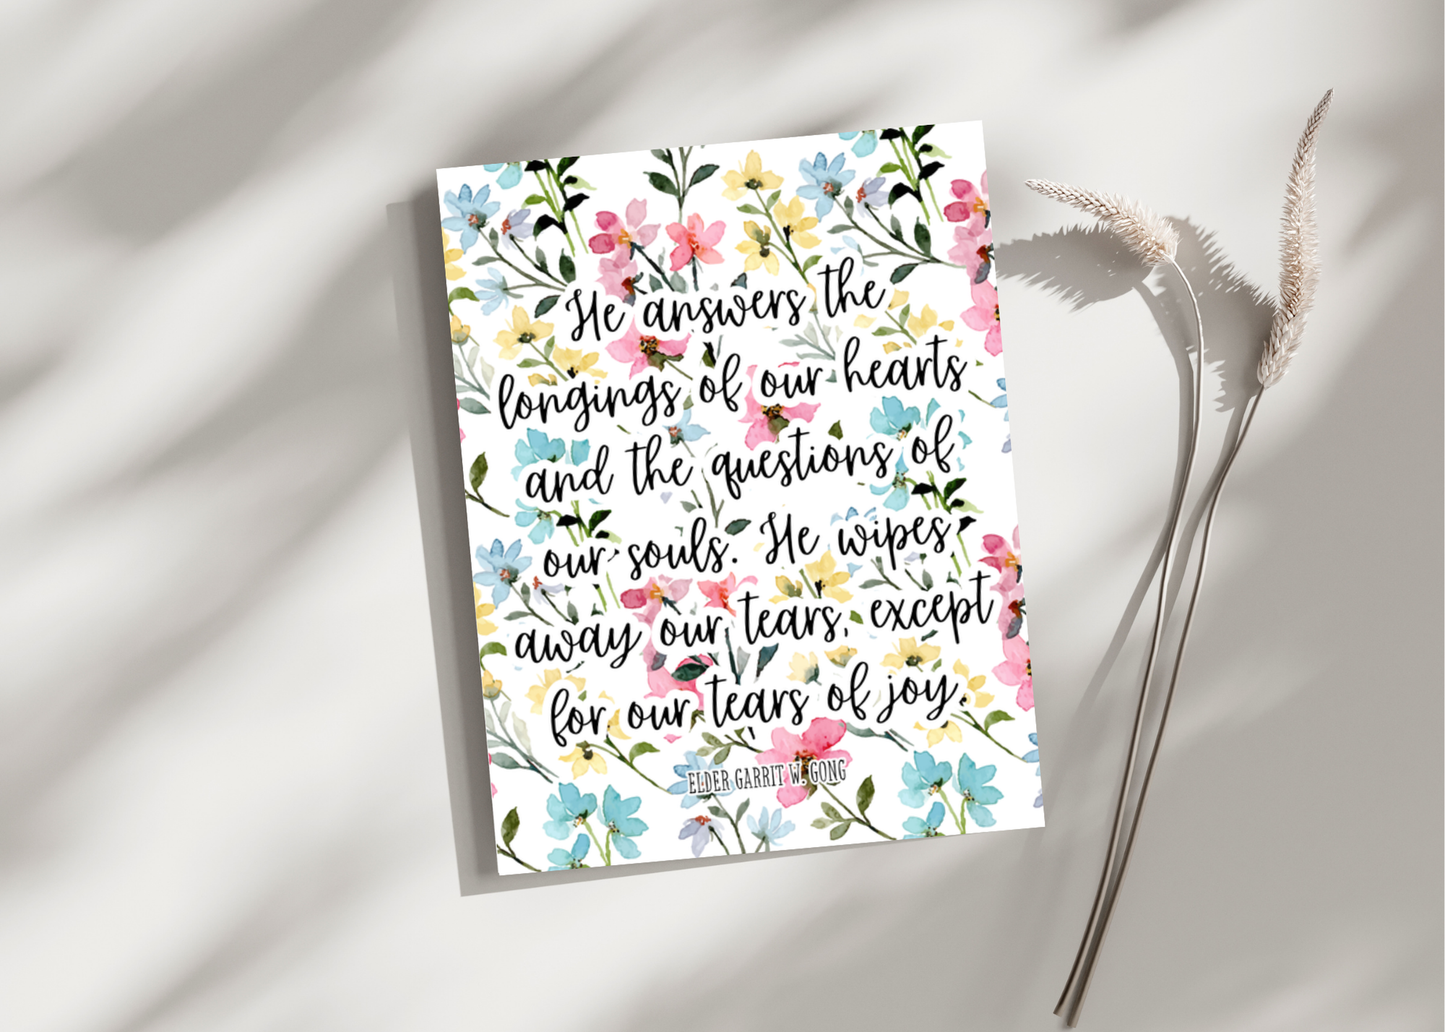 He answers the
longings of our hearts
and the questions of
our souls. He wipes
away our tears, except
for our tears of joy.
ELDER GARRIT W. GONG